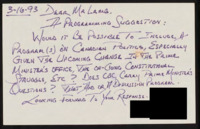 3-16-93 Dear Mr Lamb,
A Programming Suggestion:
Would it be possible to include a
Program(s) on Canadian politics, especially
given the upcoming change in the Prime
Minister's office, the on-going constitutional
struggle, etc? Does CBC carry Prime Minister's
Questions? That also is a
Looking forward to your response.